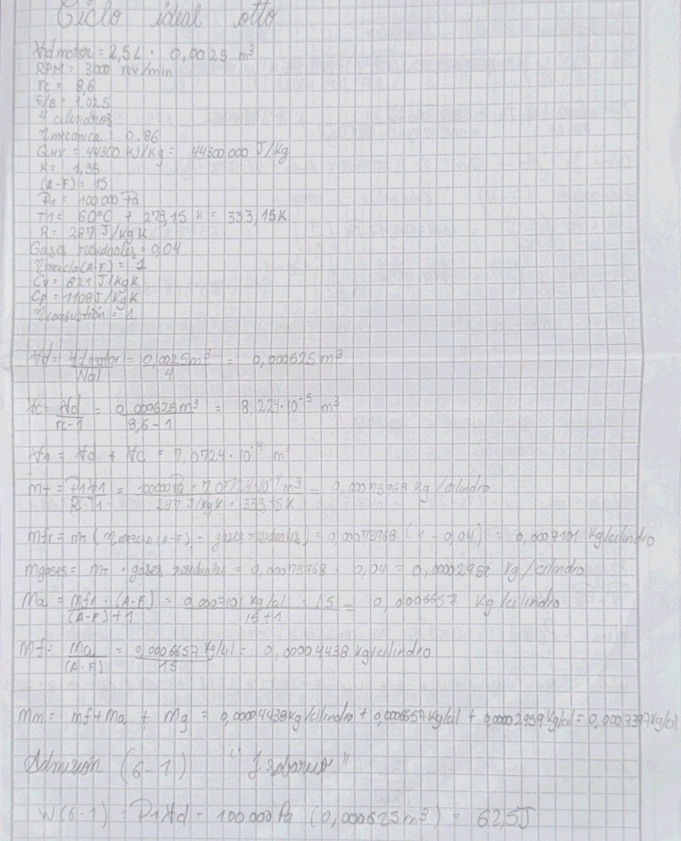 Ciclo ideal otto
Vd motor = 2,5 L · 0,0025 m³
RPM = 3000 rev/min
rc = 8,6
S/B = 1.025
4 cilindros
η mecanica = 0.86
QHV = 44300 KJ/Kg = 44300 000 J/Kg
K = 1,35
(A-F) = 15
P1 = 100 000 Pa
T1 = 60°C + 273,15 K = 333,15K
R = 287 J/kg K
Gases residuales = 0,04
η mezcla (A-F) = 1
Cv = 821 J/Kg K
Cp = 1108 J/Kg K
η combustión = 1
Vd = Vd motor / Ncil = 0,0025 m³ / 4 = 0,000625 m³
Vc = Vd / rc-1 = 0,000625 m³ / 8,6 - 1 = 8,224·10⁻⁵ m³
V1 = Vd + Vc = 7,0724·10⁻⁴ m³
mT = P1V1 / R T1 = 100000 Pa · 7,0724·10⁻⁴ m³ / 287 J/kg K · 333,15K = 0,00073968 Kg/cilindro
mf1 = mT (η mezcla (A-F) - gases residuales) = 0,00073968 (1 - 0,04) = 0,0007101 Kg/cilindro
mgases = mT · gases residuales = 0,00073968 · 0,04 = 0,00002959 Kg/cilindro
Ma = mf1 · (A-F) / (A-F)+1 = 0,0007101 kg/cil · 15 / 15+1 = 0,0006657 Kg/cilindro
Mf = Ma / (A-F) = 0,0006657 Kg/cil / 15 = 0,00004438 Kg/cilindro
Mm = mf + Ma + Mg = 0,00004438 kg/cilindro + 0,0006657 Kg/cil + 0,00002959 Kg/cil = 0,0007397 Kg/cil
Admisión (6-1) "Isobarico"
W(6-1) = P1Vd = 100 000 Pa (0,000625 m³) = 62,5J